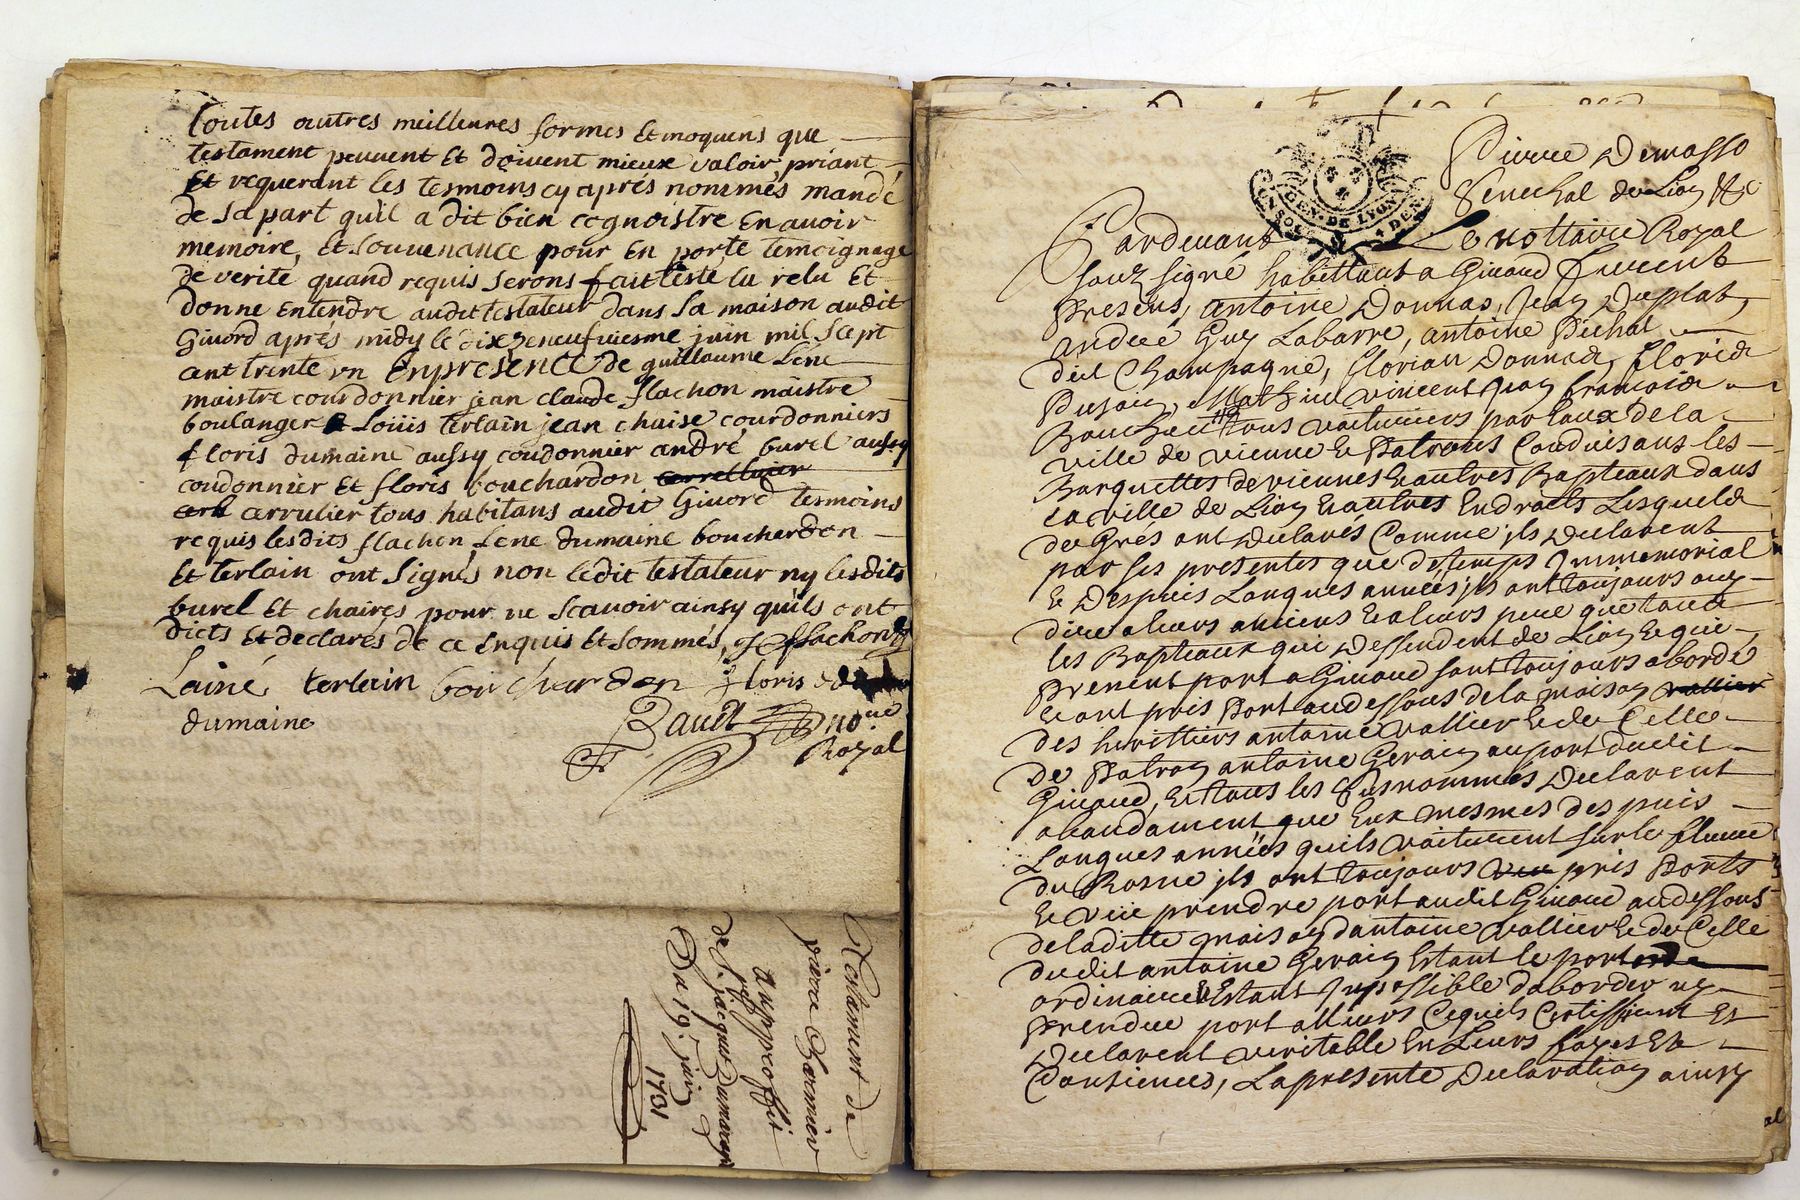 toutes autres meilleures formes Et moyens que
testament peuuent Et doiuent mieux valoir, priant
Et requerant les tesmoins cy aprés nommés mandé
de sa part quil a dit bien cognoistre En auoir
memoire, Et souuenance pour En porte temoignage
de verité quand requis serons fait leste lu relu Et
donné Entendre audit testateur dans sa maison audit
Giuord aprés midy le dixeneufuiesme juin mil sept
cent trente vn En presence de guillaume Lené
maistre courdonnier jean claude flachon maistre
boulanger Loüis terlain jean chaise courdonniers
floris dumaine aussy coudonnier andré burel aussy
coudonnier Et floris bouchardon
cerrulier tous habitans audit Giuord tesmoins
requis lesdits flachon Lené dumaine boucherdon
Et terlain ont signés non ledit testateur ny lesdits
burel Et chaires pour ne scauoir ainsy quils ont
dicts Et declarés de ce Enquis Et sommés, flachon
Lainé terlain bouchardon floris
dumaine
no.re
Royal
Testament de
pierre Charmier
au proffit
de Sr. jacques Dumaine
Du 19e juin
1731
GEN. DE LYON
Pierre Demasso
Senechal de Lion &c
Pardeuant Le nottaire Royal
souz signé habittant a Giuord furent
Presens, antoine Donnas, Jean Duplat,
andree Guy Labarre, antoine Pichat
dict Champagne, florian Donnas, floris
Pusoin, Mathieu vincent Jean françois
tous voituriers par Eaux de la
ville de vienne & Patrons Conduisans les
Barquettes de viennes & autres Bapteaux dans
la ville de Lion & autres Endroits Lesquels
de Grés ont Declarés Comme ils Declarent
par ses presentes que de temps Immemorial
& Despuis Longues années ils ont toujours ouy
dire a leurs anciens & a leurs pere que tous
les Bapteaux qui Dessendent de Lion & qui
Prenent port a Giuord sont toujours abordé
& ont pris Port au dessous de la maison vallier
des herittiers antoine vallier & de Celle
de Patron antoine Gerain au port dudit
Giuord, Et tous les susnommés Declarent
abondament que Eux mesmes des puis
Longues années quils voiturent sur le fleuue
du Rosne ils ont toujours pris Ports
& veü prendre port audit Giuord au dessous
de laditte maison dantoine vallier & de Celle
dudit antoine Gerain Estant le port
ordinaire & Estant Impossible daborder ny
Prendre port allieurs Cequils Certiffient Et
Declarent veritable En Leurs foyes Et
Consiences, La presente Declaration ainsy